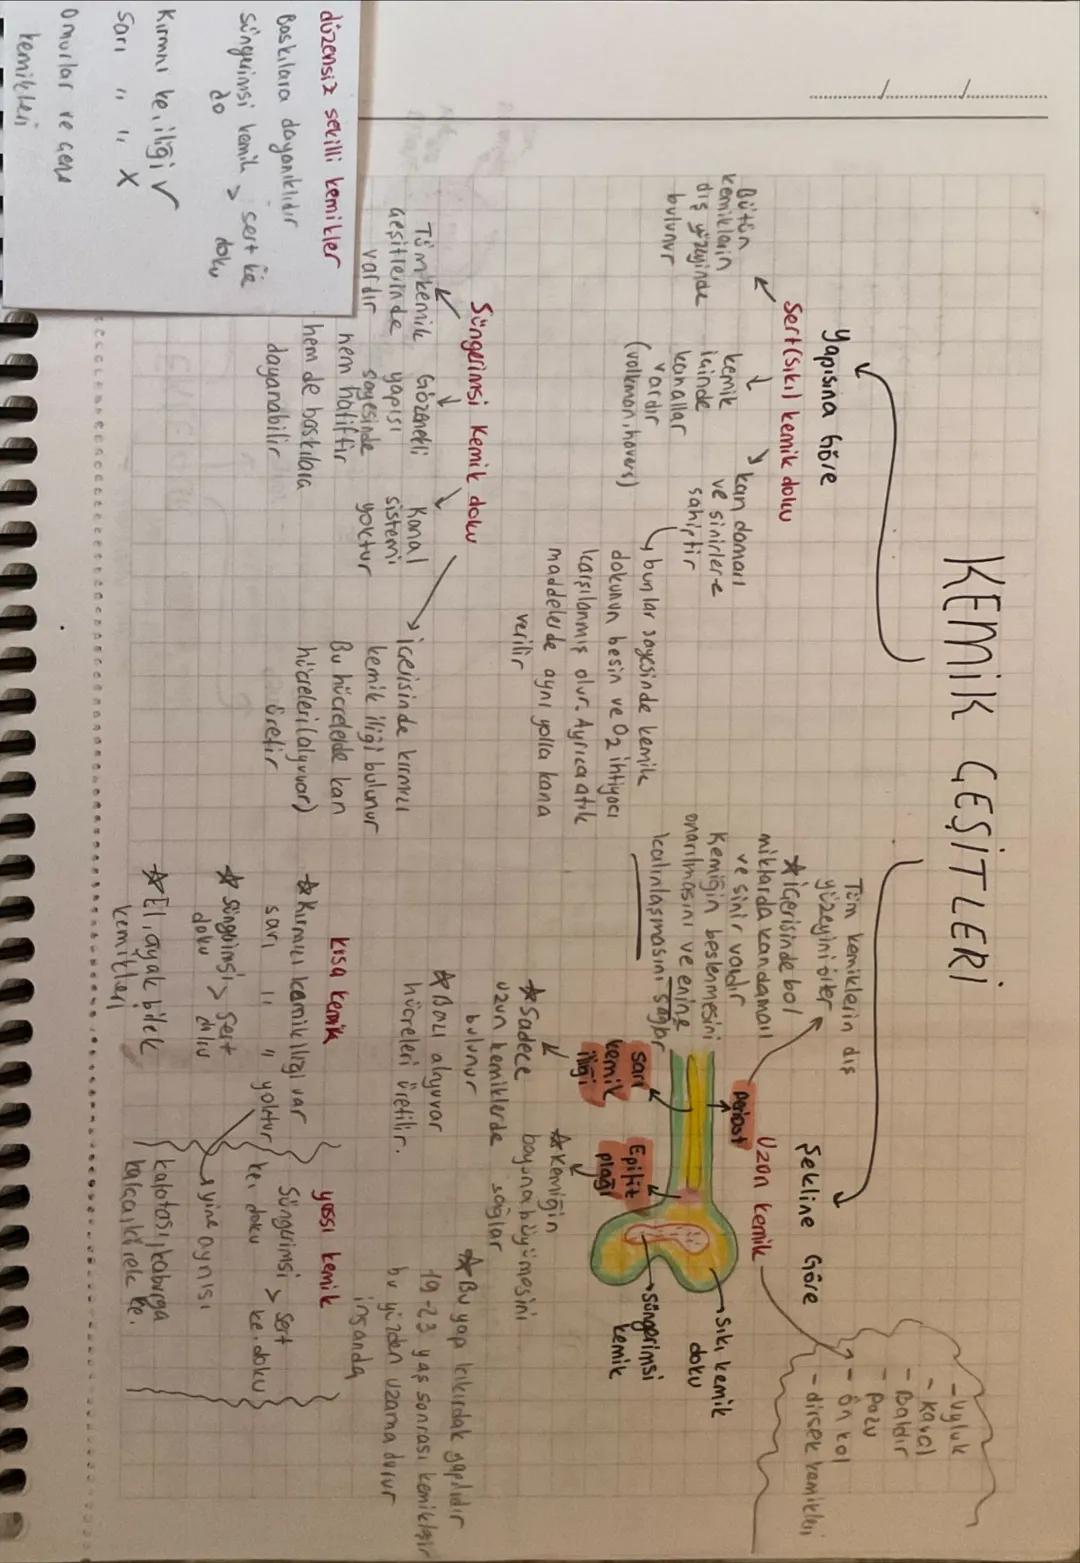 KEMİK ÇEŞİTLERİ
Yapısına Göre
Sert(sıkı) kemik doku
Bütün
kemiklerin
dış yüzeyinde
bulunur
kemik
içinde
kanallar
vardır
(volkman, havers)
kan damarı
ve sinirlere
sahiptir
bunlar sayesinde kemik
dokunun besin ve O2 ihtiyacı
karşılanmış olur. Ayrıca atık
maddelerde aynı yolla kana
verilir
Süngerimsi kemik doku
Tüm kemik
çeşitlerinde
vardır
Gözenekli
yapısı
sayesinde
hem hafiftir
hem de baskılara
dayanabilir
Kanal
sistemi
yoktur
içerisinde kırmızı
kemik iliği bulunur
Bu hücrelerde kan
hücreleri(alyuvar)
üretir
Şekline Göre
Uzun kemik
- uyluk
- kaval
- Baldır
- pazu
- ön kol
- dirsek kemikleri
Tüm kemiklerin dış
yüzeyini örter
☆ içerisinde bol
miktarda kan damarı
ve sinir vardır
Kemiğin beslenmesini
onarılmasını ve enine
kalınlaşmasını sağlar
periost
sarı
kemik
iliği
Epifiz
plağı
Sıkı kemik
doku
süngerimsi
kemik
☆ Sadece
uzun kemiklerde
bulunur
☆ Bazı akyuvar
hücreleri üretilir.
☆ Kemiğin
boyuna büyümesini
sağlar
☆ Bu yapı kıkırdak yapılıdır
19-23 yaş sonrası kemikleşir
bu yüzden uzama durur
insanda
kısa kemik
☆ Kırmızı kemik iliği var
sarı " " yoktur
☆ Süngerimsi > Sert
doku doku
☆ El, ayak bilek
kemikleri
yassı kemik
Süngerimsi > Sert
ke. doku ke. doku
yine aynısı
kafatası, kaburga
kalça, kürek ke.
düzensiz şekilli kemikler
Baskılara dayanıklıdır
süngerimsi kemik > sert ke
do doku
Kırmızı ke. iliği ✓
sarı " " X
Omurlar ve çene
kemikleri